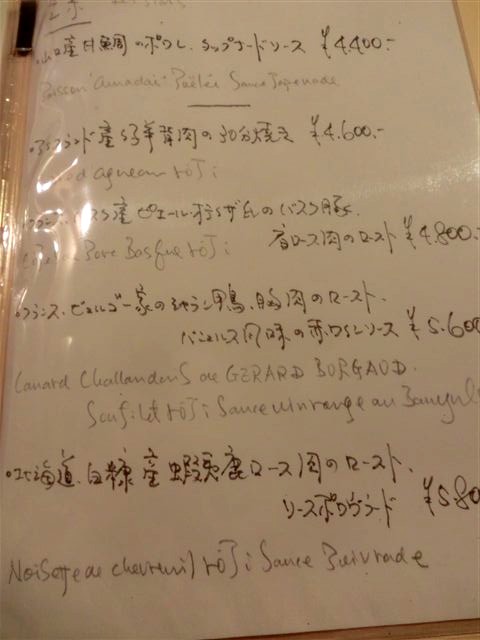 山口産甘鯛のポワレ、タップナードソース ¥4.400.-
Poisson Amadai Poêlée Sauce Tapenade
産仔羊背肉の30分焼き ¥4.600.-
agneau rôti
産ピエール・オテイザ氏のバスク豚
肩ロース肉のロースト ¥4.800.-
Porc Basque rôti
・フランス、ビュルゴー家のシャラン鴨、胸肉のロースト、
バニュルス風味の赤ワインソース ¥5.600
Canard Challandans de GERARD BURGAUD.
rôti Sauce vin rouge au Banyul
・北海道、白糠産蝦夷鹿ロース肉のロースト、
ソースポワヴラード ¥5.80
Noisette de chevreuil rôti Sauce Poivrade